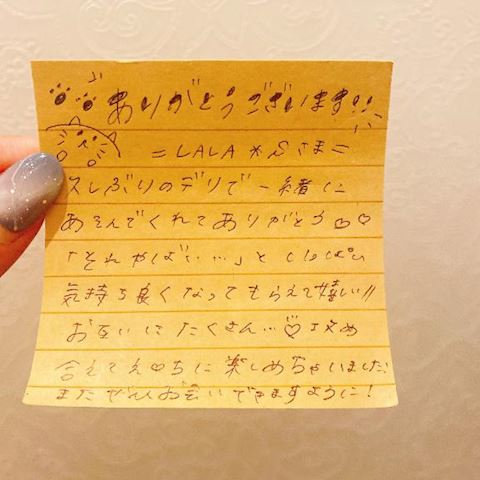 ありがとうございます!!
=LALA*んさま=
久しぶりのデリで一緒に
あそんでくれてありがとう♡♡
「それやばい…」といっぱい
気持ち良くなってもらえて嬉しい//
お互いにたくさん…♡攻め
合えてえ♡ちに楽しめちゃいました!
またぜひお会いできますように!